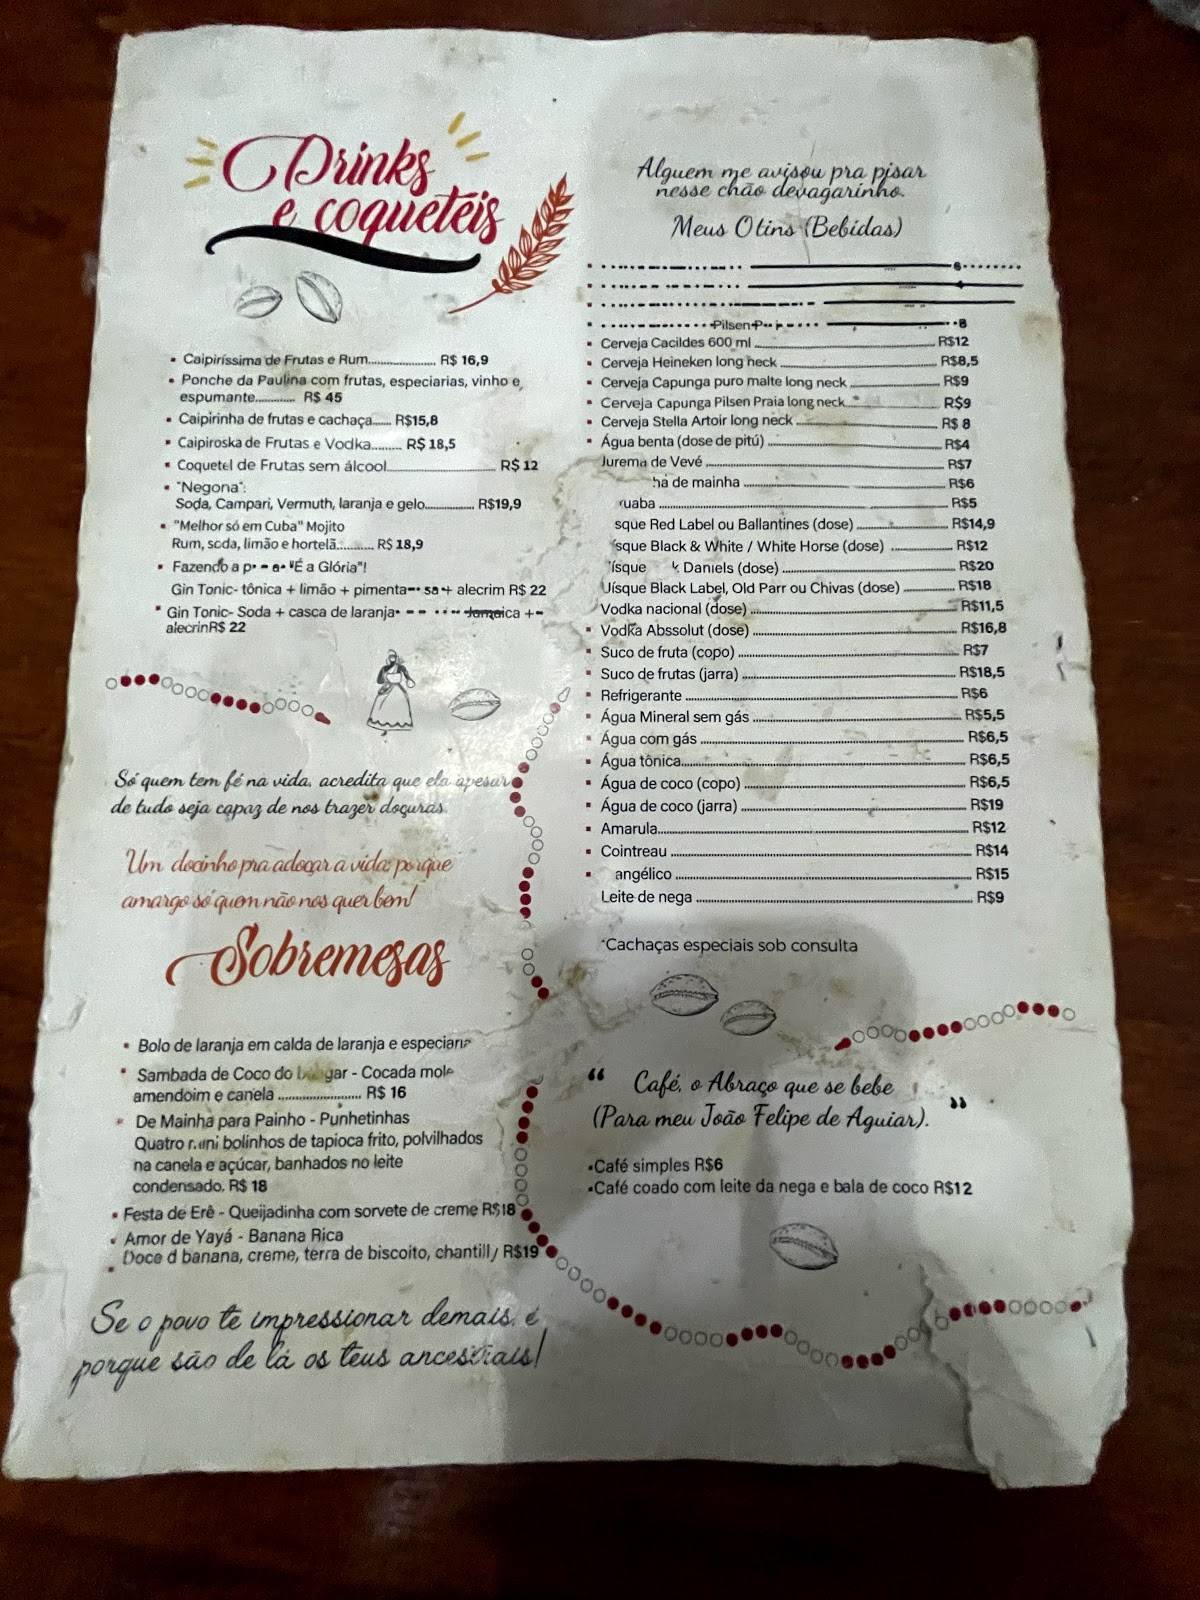 Drinks
e coquetéis
• Caipiríssima de Frutas e Rum.................... R$ 16,9
• Ponche da Paulina com frutas, especiarias, vinho e
espumante............ R$ 45
• Caipirinha de frutas e cachaça...... R$15,8
• Caipiroska de Frutas e Vodka......... R$ 18,5
• Coquetel de Frutas sem álcool.............................. R$ 12
• "Negona":
Soda, Campari, Vermuth, laranja e gelo.............. R$19,9
• "Melhor só em Cuba" Mojito
Rum, soda, limão e hortelã........... R$ 18,9
• Fazendo a "É a Glória"!
Gin Tonic- tônica + limão + pimenta + alecrim R$ 22
• Gin Tonic- Soda + casca de laranja Jamaica +
alecrinR$ 22
Só quem tem fé na vida, acredita que ela apesar
de tudo seja capaz de nos trazer doçuras.
Um docinho pra adoçar a vida, porque
amargo só quem não nos quer bem!
Sobremesas
• Bolo de laranja em calda de laranja e especiaria
• Sambada de Coco do - Cocada mole
amendoim e canela ........................ R$ 16
• De Mainha para Painho - Punhetinhas
Quatro mini bolinhos de tapioca frito, polvilhados
na canela e açúcar, banhados no leite
condensado. R$ 18
• Festa de Erê - Queijadinha com sorvete de creme R$18
• Amor de Yayá - Banana Rica
Doce d banana, creme, terra de biscoito, chantilly R$19
Se o povo te impressionar demais, é
porque são de lá os teus ancestrais!
Alguem me avisou pra pisar
nesse chão devagarinho.
Meus Otins (Bebidas)
Pilsen
• Cerveja Cacildes 600 ml ........ R$12
• Cerveja Heineken long neck ........ R$8,5
• Cerveja Capunga puro malte long neck ........ R$9
• Cerveja Capunga Pilsen Praia long neck ........ R$9
• Cerveja Stella Artoir long neck ........ R$ 8
• Água benta (dose de pitú) ........ R$4
Jurema de Vevé ........ R$7
há de mainha ........ R$6
ruaba ........ R$5
sque Red Label ou Ballantines (dose) ........ R$14,9
sque Black & White / White Horse (dose) ........ R$12
ísque k Daniels (dose) ........ R$20
Uísque Black Label, Old Parr ou Chivas (dose) ........ R$18
Vodka nacional (dose) ........ R$11,5
• Vodka Abssolut (dose) ........ R$16,8
• Suco de fruta (copo) ........ R$7
• Suco de frutas (jarra) ........ R$18,5
• Refrigerante ........ R$6
• Água Mineral sem gás ........ R$5,5
• Água com gás ........ R$6,5
• Água tônica........ R$6,5
• Água de coco (copo) ........ R$6,5
• Água de coco (jarra) ........ R$19
• Amarula........ R$12
• Cointreau ........ R$14
• angélico ........ R$15
Leite de nega ........ R$9
*Cachaças especiais sob consulta
“ Café, o Abraço que se bebe
(Para meu João Felipe de Aguiar). ”
•Café simples R$6
•Café coado com leite da nega e bala de coco R$12